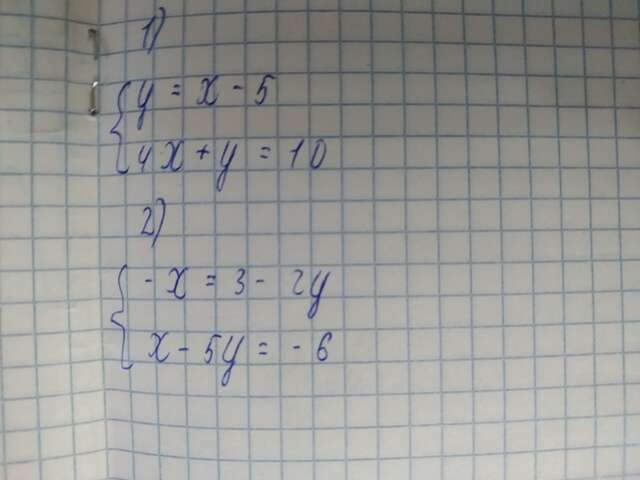 1)
y = x - 5
4x + y = 10
2)
- x = 3 - 2y
x - 5y = - 6